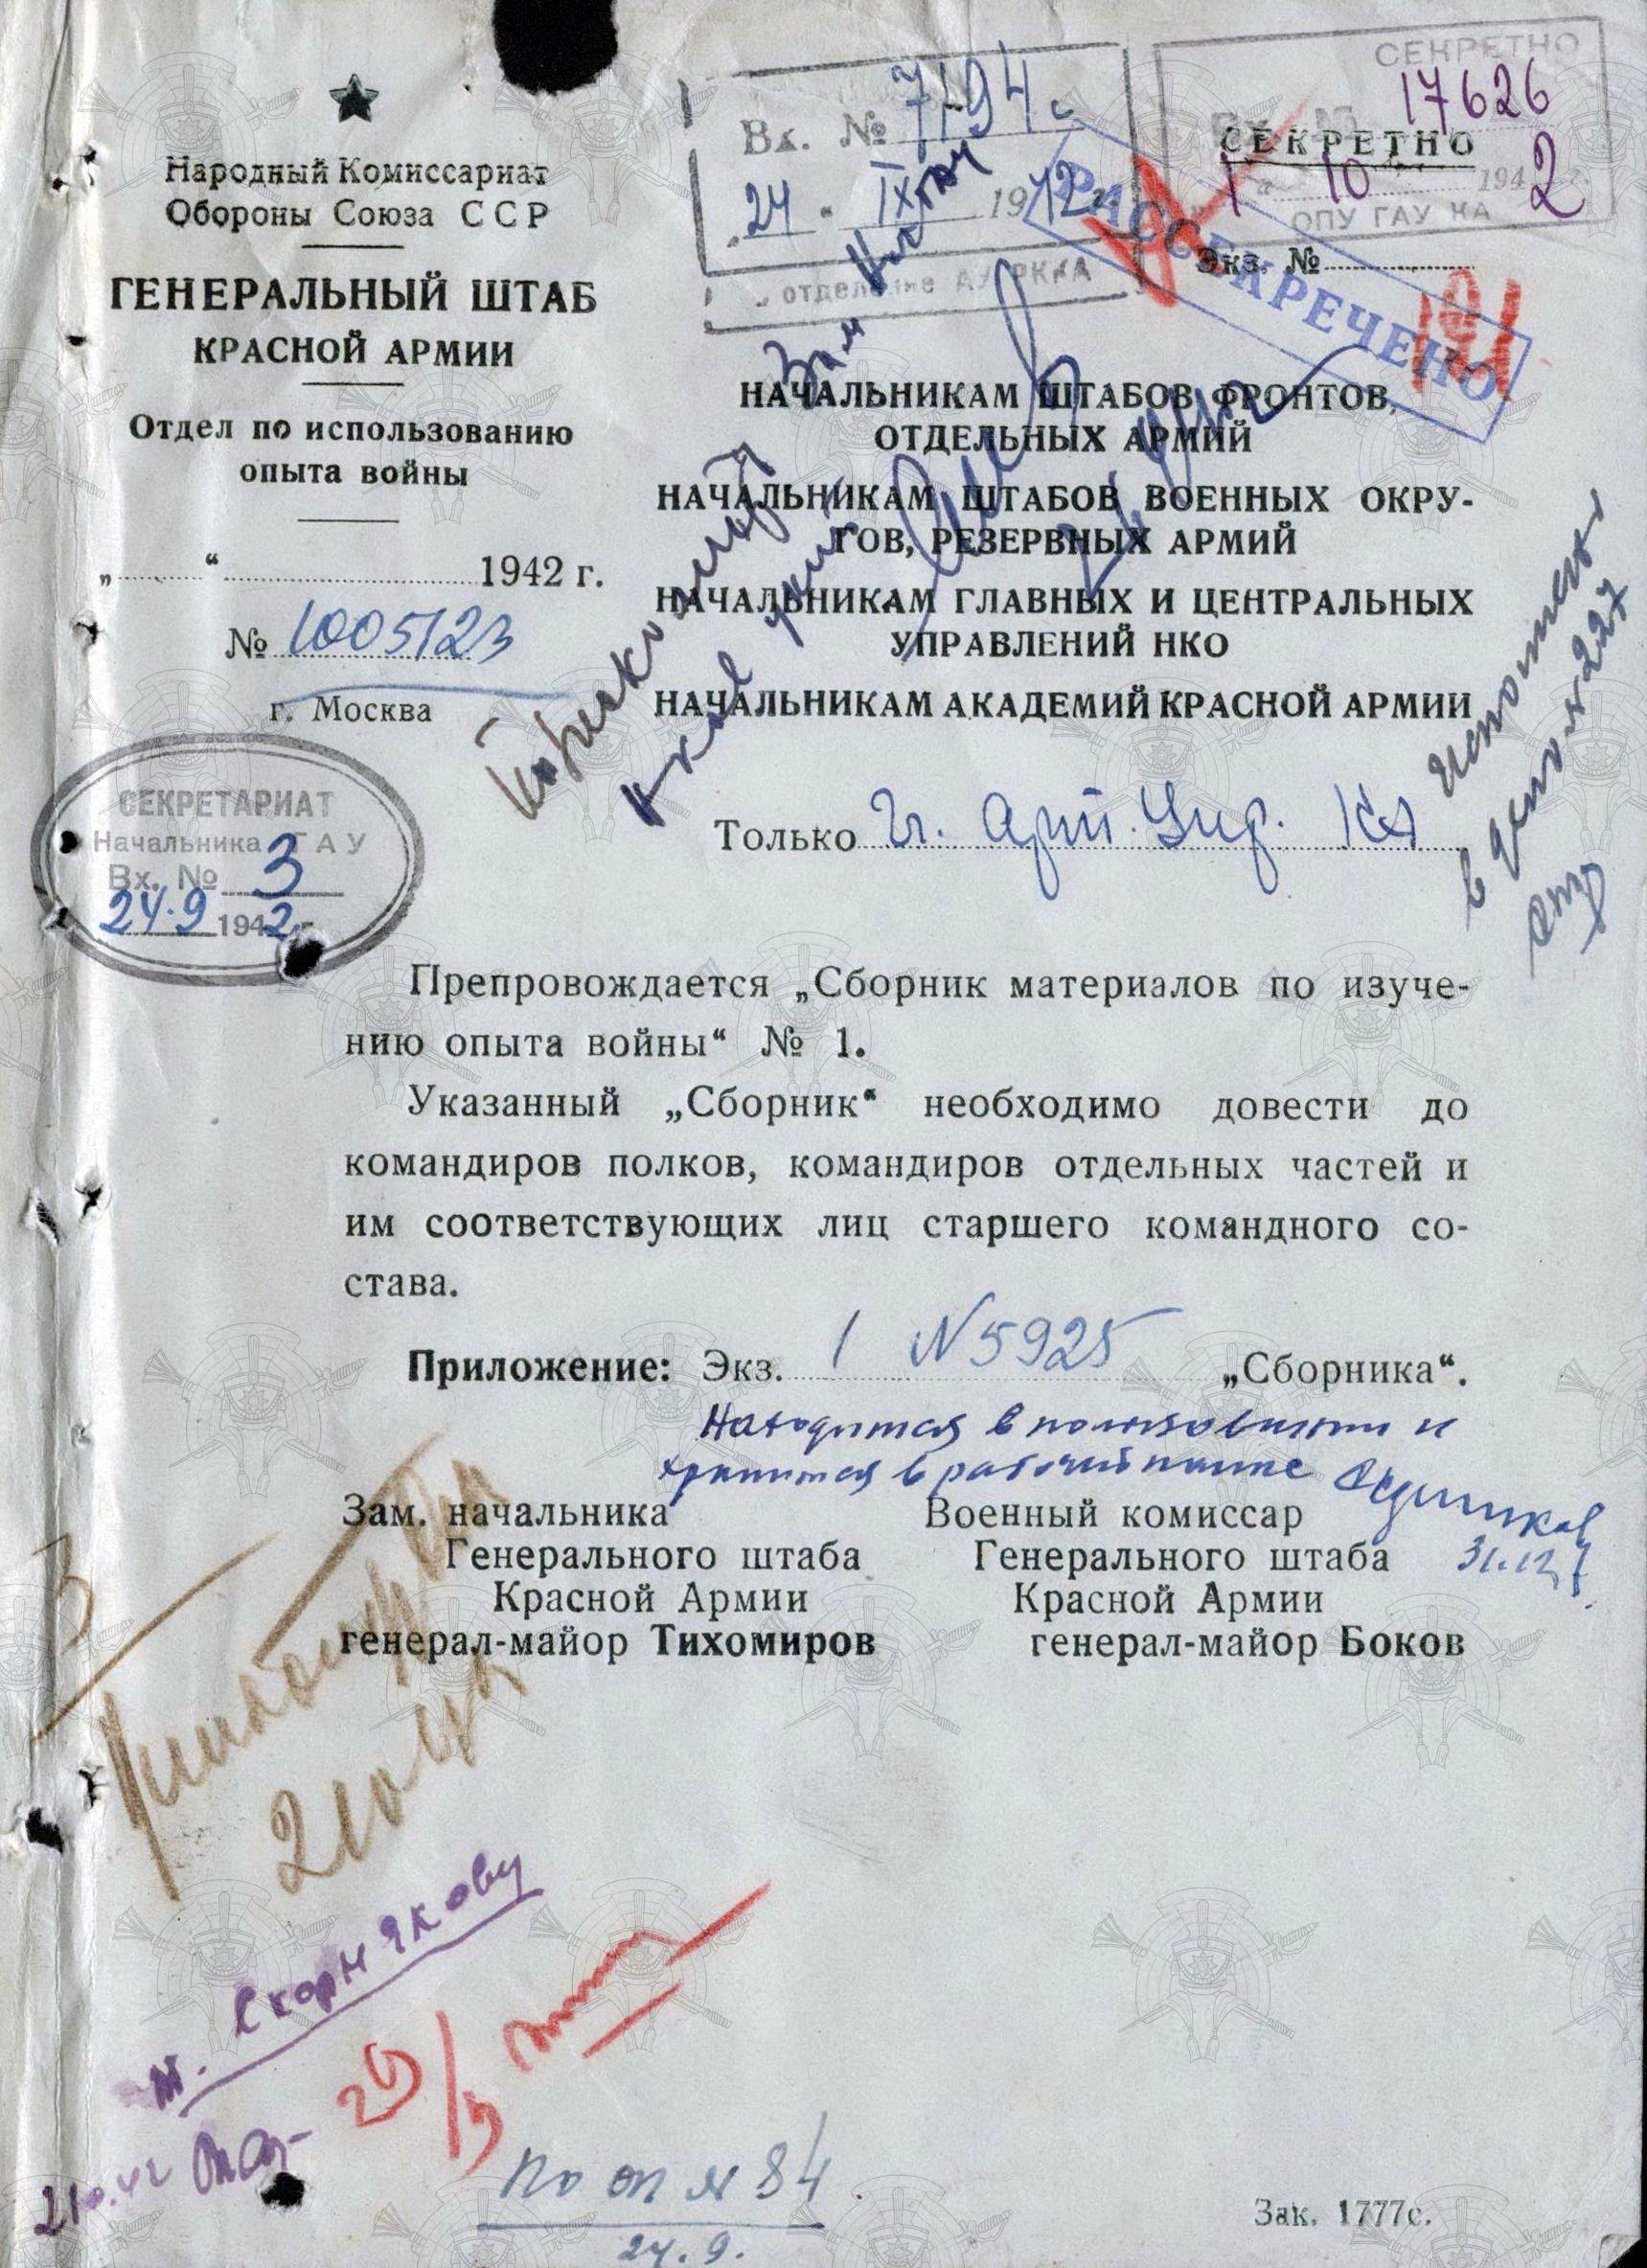 Вх. № 7194с
24 IX 1942 г.
отделение АУ РККА
СЕКРЕТНО
Вх. № 17626
1 10 1942
ОПУ ГАУ КА
СЕКРЕТНО
Экз. №
РАССЕКРЕЧЕНО
Народный Комиссариат
Обороны Союза ССР
ГЕНЕРАЛЬНЫЙ ШТАБ
КРАСНОЙ АРМИИ
Отдел по использованию
опыта войны
„ “ 1942 г.
№ 1005123
г. Москва
СЕКРЕТАРИАТ
Начальника ГАУ
Вх. № 3
24.9 1942 г.
НАЧАЛЬНИКАМ ШТАБОВ ФРОНТОВ,
ОТДЕЛЬНЫХ АРМИЙ
НАЧАЛЬНИКАМ ШТАБОВ ВОЕННЫХ ОКРУ-
ГОВ, РЕЗЕРВНЫХ АРМИЙ
НАЧАЛЬНИКАМ ГЛАВНЫХ И ЦЕНТРАЛЬНЫХ
УПРАВЛЕНИЙ НКО
НАЧАЛЬНИКАМ АКАДЕМИЙ КРАСНОЙ АРМИИ
Только Гл. Арт. Упр. КА
Препровождается „Сборник материалов по изуче-
нию опыта войны“ № 1.
Указанный „Сборник“ необходимо довести до
командиров полков, командиров отдельных частей и
им соответствующих лиц старшего командного со-
става.
Приложение: Экз. 1 N 5925 „Сборника“.
Находится в пользовании и
хранится в рабочей папке
31.12
Зам. начальника
Генерального штаба
Красной Армии
генерал-майор Тихомиров
Военный комиссар
Генерального штаба
Красной Армии
генерал-майор Боков
т. Скорнякову
2.10.42
20/3
По оп N 84
24.9.
Зак. 1777с.